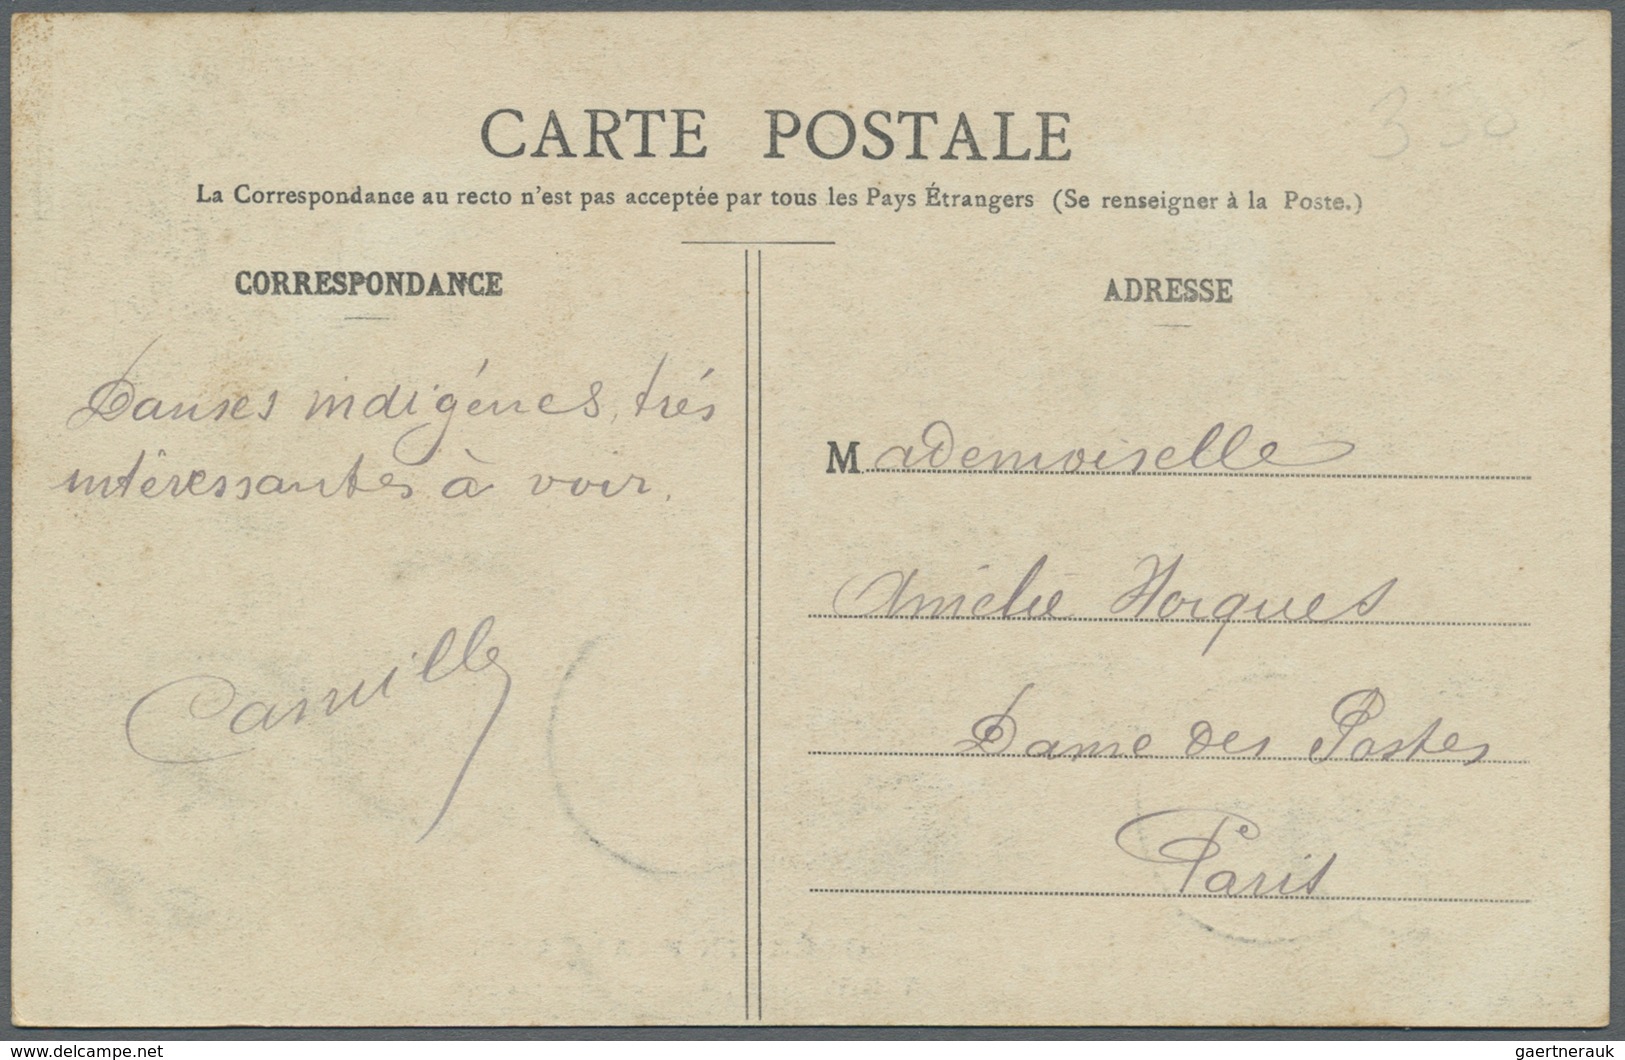 CARTE POSTALE
La Correspondance au recto n'est pas acceptée par tous les Pays Étrangers (Se renseigner à la Poste.)
CORRESPONDANCE
Danses indigénes, trés
intéressantes à voir.
Camille
ADRESSE
Mademoiselle
Amélie Horques
Dame des Postes
Paris
350
www.delcampe.net
gaertnerauk